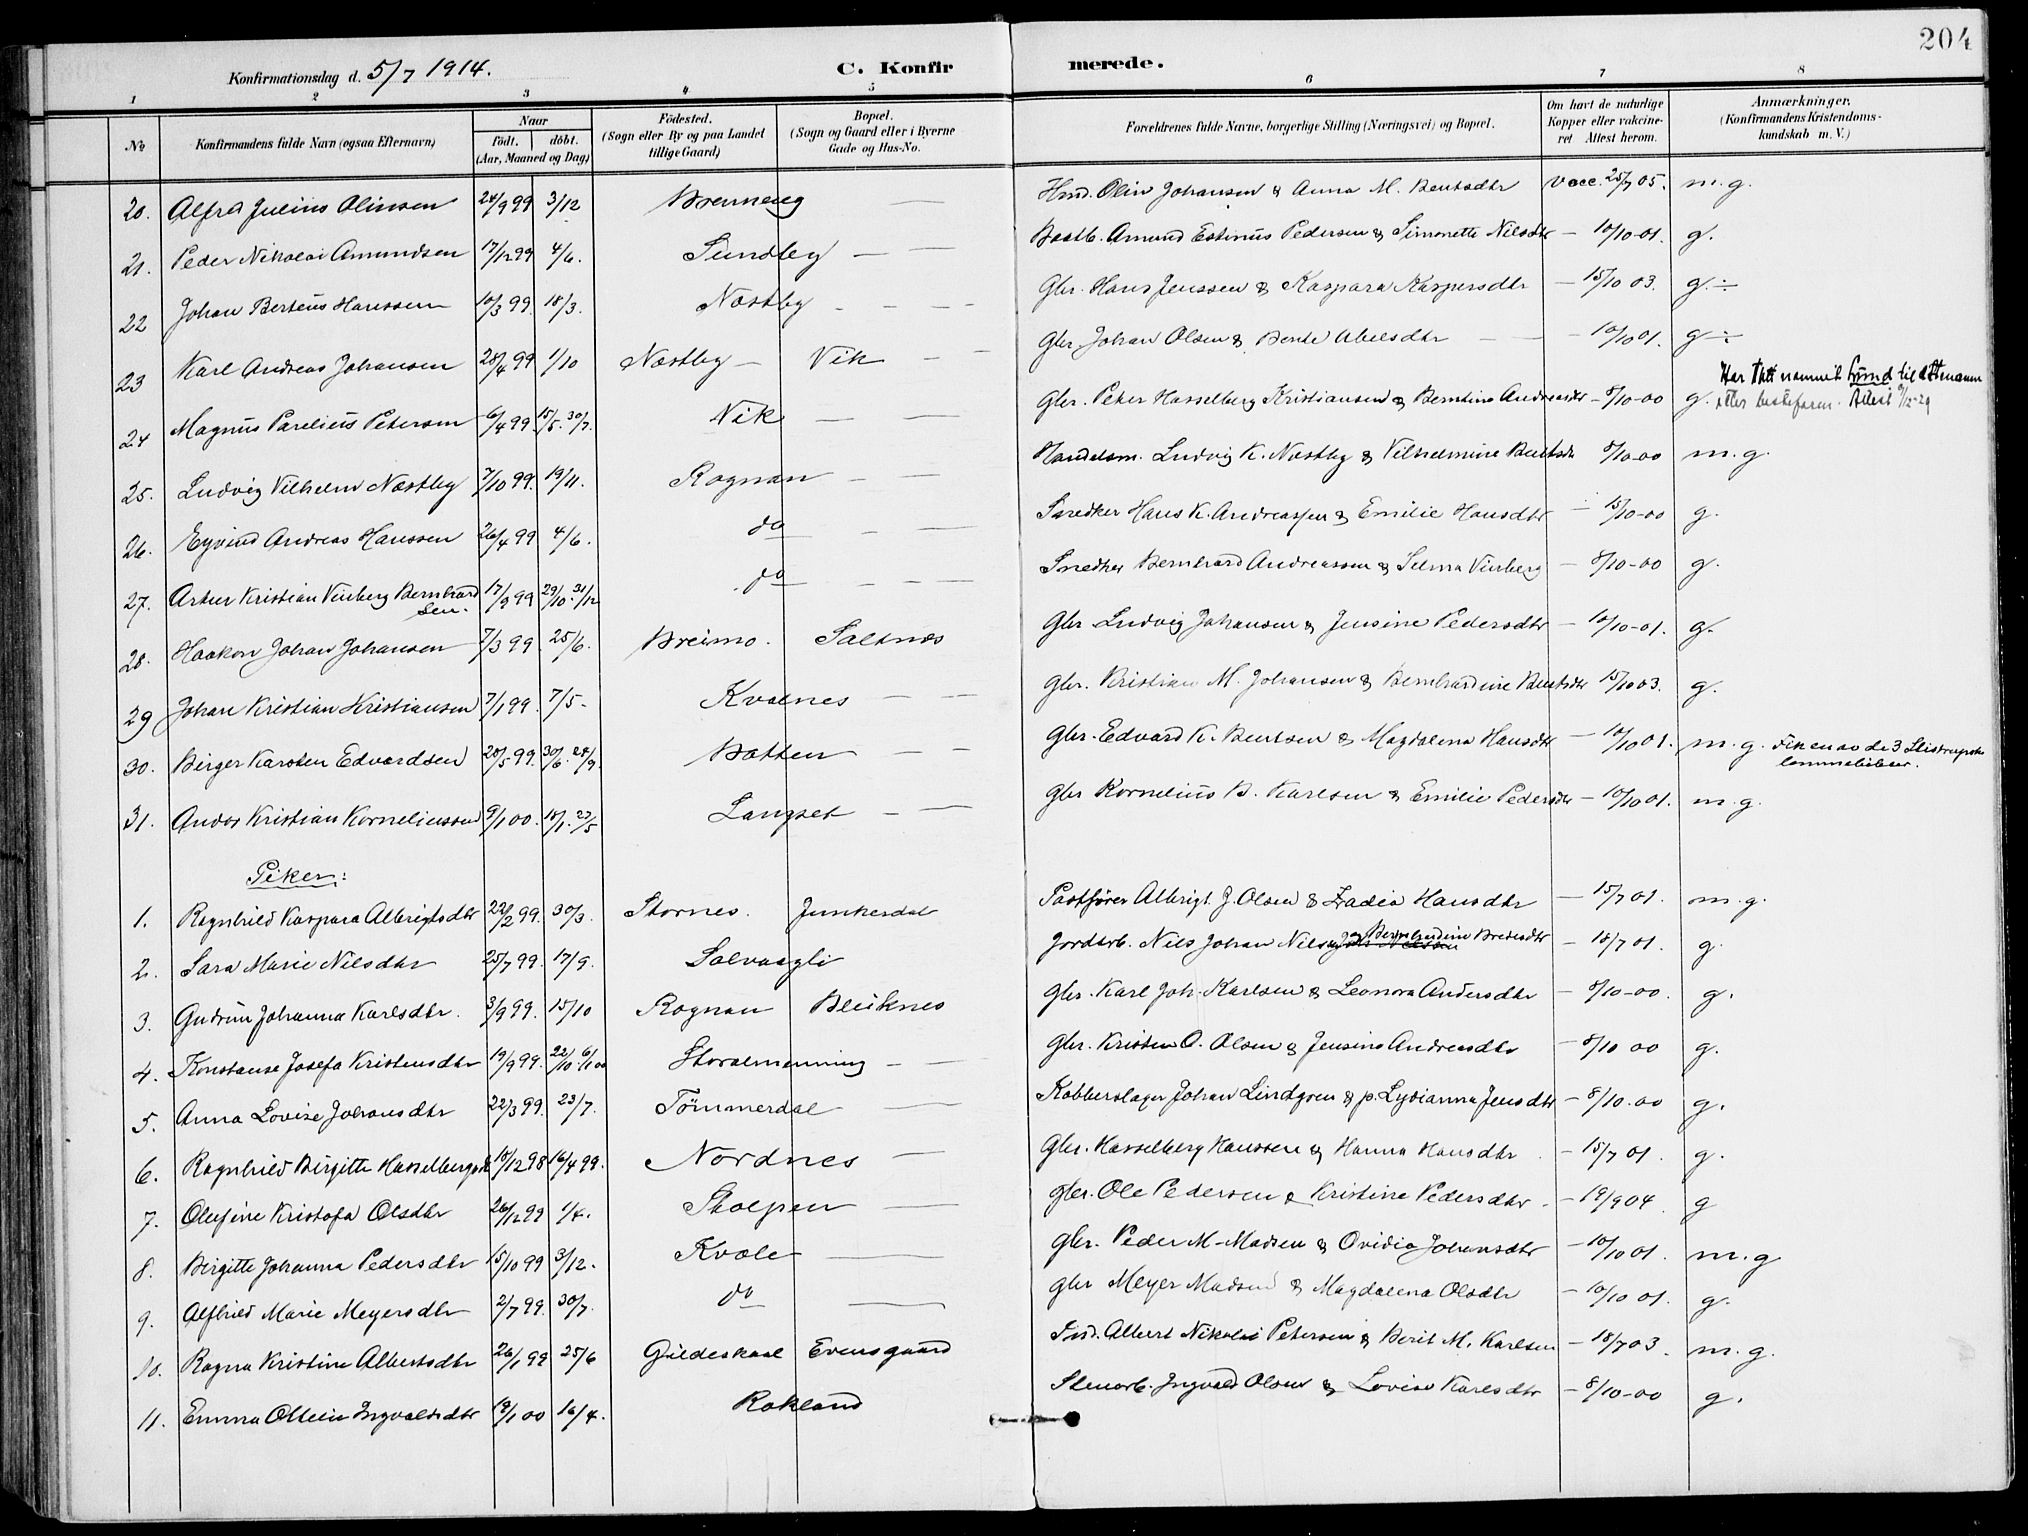 204
Konfirmationsdag d. 5/7 1914.
C. Konfir merede.
1 2 3 4 5 6 7 8
No
Konfirmandens fulde Navn (ogsaa Efternavn)
Naar
født. døbt.
(Aar, Maaned og Dag)
Fødested.
(Sogn eller By og paa Landet
tillige Gaard)
Bopæl.
(Sogn og Gaard eller i Byerne
Gade og Hus-No.
Forældrenes fulde Navne, borgerlige Stilling (Næringsvei) og Bopæl.
Om havt de naturlige
Kopper eller vakcine-
ret Attest herom.
Anmærkninger.
(Konfirmandens Kristendoms-
kundskab m. V.)
20. Alfred Julius Olinsen 24/9 99 3/12 Brenneng — Hmd. Olin Johansen & Anna M. Bentsdtr Vacc. 25/7 05. m.g.
21. Peder Nikolai Amundsen 17/12 99 4/6. Sundby — Baatb. Amund Estinus Pedersen & Simonette Nilsdtr — 10/10-01. g.
22 Johan Berteus Hanssen 10/3 99. 18/3. Næstby - — — Gbr. Hans Jenssen & Kaspara Kaspersdtr — 15/10 03. g. ÷
23 Karl Andreas Johansen 28/4 99 1/10 Næstby — Vik — — Gbr. Johan Olsen & Bente Abelsdtr — — — 10/10 01. g ÷
24 Magnus Parelius Petersen 6/4 99. 15/5. 30/7. Vik — — Gbr. Peter Hasselberg Kristiansen & Berntine Andreasdtr — 8/10-00 g. Har tatt navnet Lund til ettenavn
etter bestefaren. Attest /12-29
25. Ludvig Vilhelm Næstby 7/10 99. 19/11. Rognan — — Handelsm. Ludvig K. Næstby & Vilhelmine Bentsdtr 8/10-00 m.g.
26. Eyvind Andreas Hanssen 26/4 99 4/6. do — — Snedker Hans K. Andreassen & Emilie Hansdtr — 15/10-00 g.
27. Artur Kristian Veiberg Bernhard
sen. 17/9 99 29/10. 31/12 do — — — Snedker Bernhard Andreassen & Selma Veiberg — 8/10-00 g.
28. Haakon Johan Johansen 7/3 99. 25/6. Breimo. Saltnes Gbr Ludvig Johansen & Jensine Pedersdtr — 10/10-01. g.
29 Johan Kristian Kristiansen 7/1 99. 7/5 - Kvalnes — — Gbr. Kristian M. Johansen & Bernhardine Bentsdtr 15/10 03. g.
30. Birger Karsten Edvardsen 20/5 99. 30/6. 24/9. Botten — — Gbr. Edvard K. Bentsen & Magdalena Hansdtr — 10/10 01. m.g. Fik en av de 3
31. Andor Kristian Korneliussen 9/1 00. 18/1. 27/5 Langset — — Gbr Kornelius B. Karlsen & Emilie Pedersdtr — 10/10 01. m.g.
Piker:
1. Ragnhild Kaspara Albrigtsdtr 22/2 99. 30/3. Stornes. Junkerdal Postfører Albrigt J. Olsen & Zadia Hansdtr — 15/7 01. m.g.
2. Sara Marie Nilsdtr 25/7 99. 17/9. Solvaagli Jordarb. Nils Johan Nilsen & Bernhardine Bredesdtr — 18/7 01. g
3. Gudrun Johanna Karlsdtr. 3/9 99. 15/10 Rognan Bleiknes Gbr. Karl Joh. Karlsen & Leonora Andersdtr — 8/10-00. g.
4. Konstanse Josefa Kristensdtr 19/9 99. 22/10. 6/1 00 Storalmenning — — Gbr. Kristen O. Olsen & Jensine Andreasdtr — 8/10 00 g.
5. Anna Lovise Johansdtr 22/3 99. 23/7. Tömmerdal — Kobberslager Johan Lindgren & p. Lydianna Jensdtr — 8/10.00 g.
6. Ragnhild Birgitte Hasselbergsdtr 18/12 98 16/4 99. Nordnes — Gbr. Hasselberg Hanssen & Hanna Hansdtr - 15/7 01. g.
7. Olufine Kristofa Olsdtr 26/12 99 1/4. Stolpen — Gbr. Ole Pedersen & Kristine Pedersdtr - — 19/9 04 g
8. Birgitte Johanna Pedersdtr 15/10 99 3/12. Kvæle — Gbr. Peder M. Madsen & Ovidia Johansdtr — 10/10 01. m.g
9. Alfhild Marie Meyersdtr 2/7 99. 30/7. do — Gbr Meyer Madsen & Magdalena Olsdtr — 10/10 01. g.
10. Ragna Kristine Albertsdtr 26/1 99 25/6 Gildeskaal Evensgaard Ind. Albert Nikolai Petersen & Berit M. Karlsen — 18/7 03. m.g.
11. Emma Ottelie Ingvaldsdtr 19/1 00 16/4. Rokland Stenarb. Ingvald Olsen & Lovise Karlsdtr — 8/10-00 g.